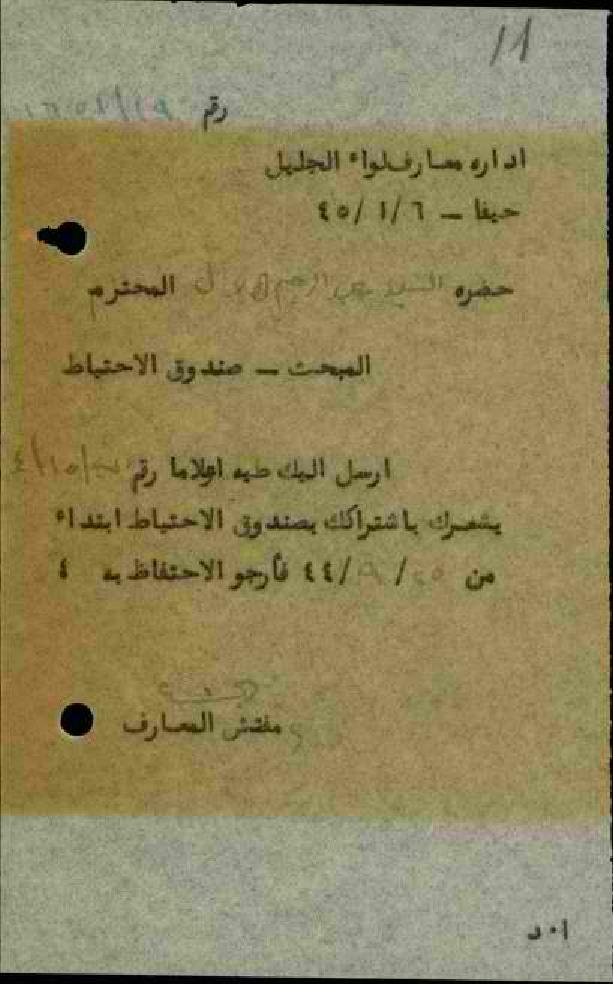 ١١
رقم
اداره معارف لواء الجليل
حيفا – ٦ /١ /٤٥
حضره السيد عبد الرحيم المحترم
المبحث – صندوق الاحتياط
ارسل اليك طيه اعلاما رقم
يشعرك باشتراكك بصندوق الاحتياط ابتداء
من / /٤٤ فأرجو الاحتفاظ به ٤
مفتش المعارف
ا٠د